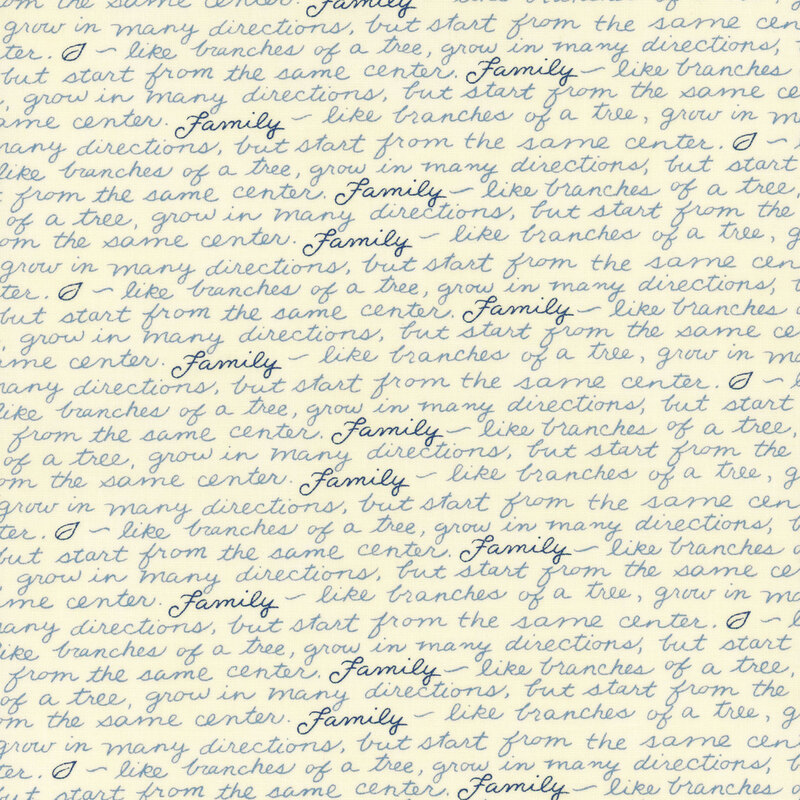 the same center. Family – like branches of a tree,
grow in many directions, but start from the same cen
ter. – like branches of a tree, grow in many directions,
but start from the same center. Family – like branches
, grow in many directions, but start from the same ce
ame center. Family – like branches of a tree, grow in m
many directions, but start from the same center. –
like branches of a tree, grow in many directions, but start
from the same center. Family – like branches of a tree,
of a tree, grow in many directions, but start from the
om the same center. Family – like branches of a tree, g
grow in many directions, but start from the same cen
ter. – like branches of a tree, grow in many directions,
but start from the same center. Family – like branches
, grow in many directions, but start from the same ce
ame center. Family – like branches of a tree, grow in m
many directions, but start from the same center. –
like branches of a tree, grow in many directions, but start
from the same center. Family – like branches of a tree,
of a tree, grow in many directions, but start from the
om the same center. Family – like branches of a tree, g
grow in many directions, but start from the same cen
ter. – like branches of a tree, grow in many directions,
but start from the same center. Family – like branches
, grow in many directions, but start from the same ce
ame center. Family – like branches of a tree, grow in m
any directions, but start from the same center. –
ike branches of a tree, grow in many directions, but start
from the same center. Family – like branches of a tree,
of a tree, grow in many directions, but start from the
om the same center. Family – like branches of a tree, g
grow in many directions, but start from the same cen
ter. – like branches of a tree, grow in many directions,
but start from the same center. Family – like branches